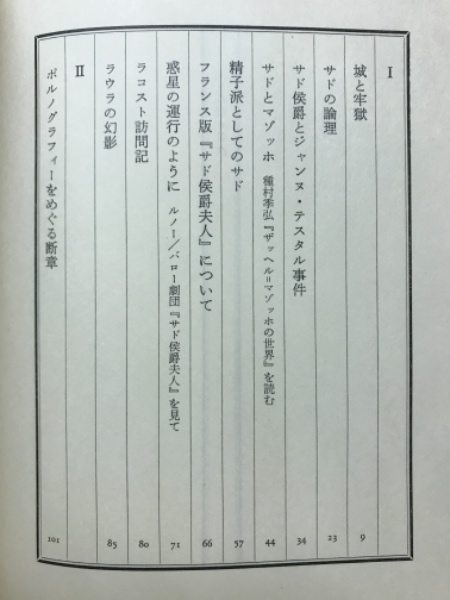 I
城と牢獄 9
サドの論理 23
サド侯爵とジャンヌ・テスタル事件 34
サドとマゾッホ 種村季弘『ザッヘル=マゾッホの世界』を読む 44
精子派としてのサド 57
フランス版『サド侯爵夫人』について 66
惑星の運行のように ルノー/バロー劇団『サド侯爵夫人』を見て 71
ラコスト訪問記 80
ラウラの幻影 85
II
ポルノグラフィーをめぐる断章 101